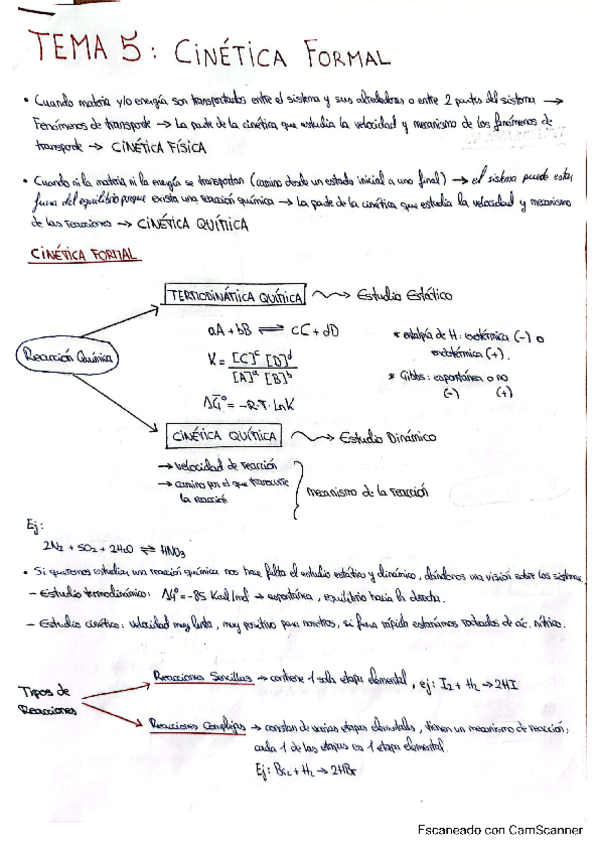 TEMA 5: CINÉTICA FORMAL
• Cuando materia y/o energía son transportados entre el sistema y sus alrededores o entre 2 partes del sistema →
Fenómenos de transporte → La parte de la cinética que estudia la velocidad y mecanismo de los fenómenos de
transporte → CINÉTICA FÍSICA
• Cuando ni la materia ni la energía se transportan (camino desde un estado inicial a uno final) → el sistema puede estar
fuera del equilibrio porque exista una reacción química → La parte de la cinética que estudia la velocidad y mecanismo
de las reacciones → CINÉTICA QUÍMICA
CINÉTICA FORMAL
TERMODINÁMICA QUÍMICA → Estudio Estático
aA + bB ⇌ cC + dD
* entalpía de H: exotérmica (-) o
endotérmica (+).
Reacción Química
K = [C]^c [D]^d / [A]^a [B]^b
* Gibbs: espontánea o no
(-) (+)
ΔG̅° = -R·T·LnK
CINÉTICA QUÍMICA → Estudio Dinámico
→ velocidad de reacción
→ camino por el que transcurre
la reacción
mecanismo de la reacción
Ej:
2N₂ + SO₂ + 2H₂O ⇌ HNO₃
• Si queremos estudiar una reacción química nos hace falta el estudio estático y dinámico, dándonos una visión sobre los sistemas.
- Estudio termodinámico: ΔG̅° = -85 Kcal/mol → espontánea, equilibrio hacia la derecha.
- Estudio cinético: velocidad muy lenta, muy positivo para nosotros, si fuera rápida estaríamos rodeados de ác. nítrico.
Reacciones Sencillas → contiene 1 sola etapa elemental, ej: I₂ + H₂ → 2HI
Tipos de
Reacciones
Reacciones Complejas → constan de varias etapas elementales, tienen un mecanismo de reacción,
cada 1 de las etapas es 1 etapa elemental.
Ej: Br₂ + H₂ → 2HBr
Escaneado con CamScanner